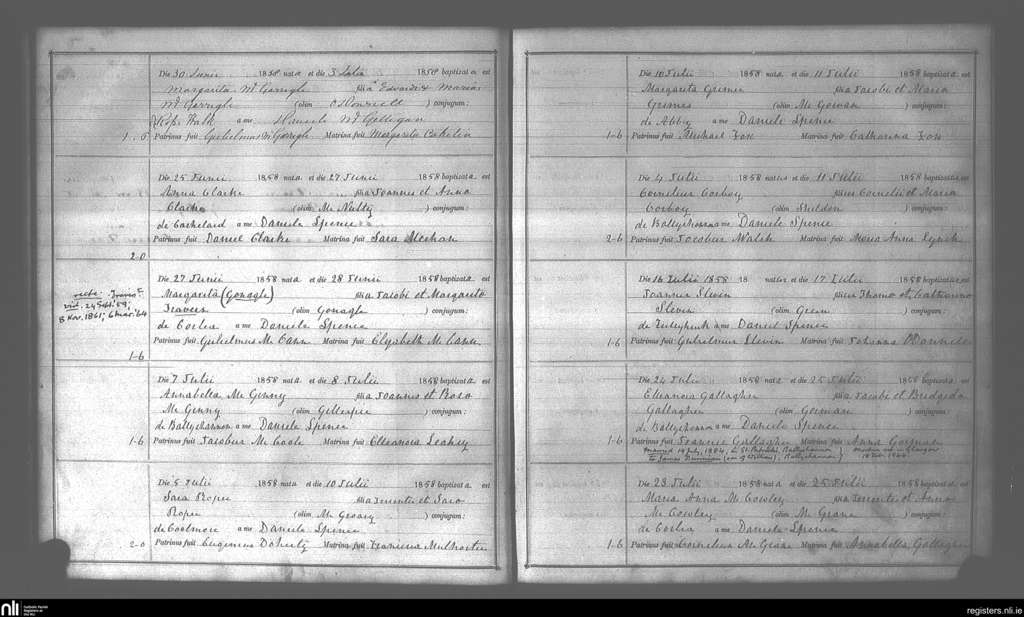 Die 30 Junii 1858 nata et die 3 Julii 1858 baptizata est
Margarita Mc Garrigle filia Edwardi et Maria
Mc Garrigle (olim O'Donnell) conjugum:
Walk a me Mc Gettigan
1-5 Patrinus fuit Gulielmus Mc Garrigle Matrina fuit Margarita
Die 25 Junii 1858 nata et die 27 Junii 1858 baptizata est
Anna Clarke filia Joannis et Anna
Clarke (olim Mc Nulty) conjugum:
de Carkeland a me Daniele Spence
Patrinus fuit Daniel Clarke Matrina fuit Sara Meehan
2-0
Die 27 Junii 1858 nata et die 28 Junii 1858 baptizata est
recte: Travers
vid. 24 1859;
8 Nov. 1861; 6 Mar. '64
Margarita (Gonagle) filia Jacobi et Margarita
Travers (olim Gonagle) conjugum:
de Corlea a me Daniele Spence
Patrinus fuit Gulielmus Mc Cann Matrina fuit Elyabeth Mc Cann
1-6
Die 7 Julii 1858 nata et die 8 Julii 1858 baptizata est
Annabella Mc Ginny filia Joannis et Rosa
Mc Ginny (olim Gillespie) conjugum:
de Ballyshannon a me Daniele Spence
1-6 Patrinus fuit Jacobus Mc Coole Matrina fuit Elleanoia Leahey
Die 5 Julii 1858 nata et die 10 Julii 1858 baptizata est
Sara Roper filia Terentii et Sara
Roper (olim Mc Groary) conjugum:
de Coolmore a me Daniele Spence
2-0 Patrinus fuit Eugenius Doherty Matrina fuit Francisca
Die 10 Julii 1858 nata et die 11 Julii 1858 baptizata est
Margarita Grimes filia Jacobi et Maria
Grimes (olim Mc Gowan) conjugum:
de Abbey a me Daniele Spence
1-6 Patrinus fuit Michael Fox Matrina fuit Catharina Fox
Die 4 Julii 1858 natus et die 11 Julii 1858 baptizatus est
Cornelius Corboy filius Cornelii et Maria
Corboy (olim Sheldon) conjugum:
de Ballyshannon a me Daniele Spence
2-6 Patrinus fuit Jacobus Walsh Matrina fuit Maria Anna Lynch
Die 16 Julii 1858 18 natus et die 17 Julii 1858 baptizatus est
Joannes Slevin filius Thoma et Catharina
Slevin (olim Green) conjugum:
de a me Daniel Spence
1-6 Patrinus fuit Gulielmus Slevin Matrina fuit Johanna O'Donnell
Die 24 Julii 1858 nata et die 25 Julii 1858 baptizata est
Elleanoia Gallagher filia Jacobi et Bridgida
Gallagher (olim Gorman) conjugum:
de Ballyshannon a me Daniele Spence
1-6 Patrinus fuit Joannes Gallagher Matrina fuit Anna Gorman
married 19 July, 1884, in St. Patrick's, Ballyshannon
to James (son of William), Ballyshannon
in Glasgow
Die 23 Julii 1858 nata et die 25 Julii 1858 baptizata est
Maria Anna Mc Cowley filia Terentii et Anna
Mc Cowley (olim Mc Grane) conjugum:
de Corlea a me Daniele Spence
1-6 Patrinus fuit Cornelius Mc Grane Matrina fuit Annabella Gallagher
nli Catholic Parish Registers at the NLI
registers.nli.ie